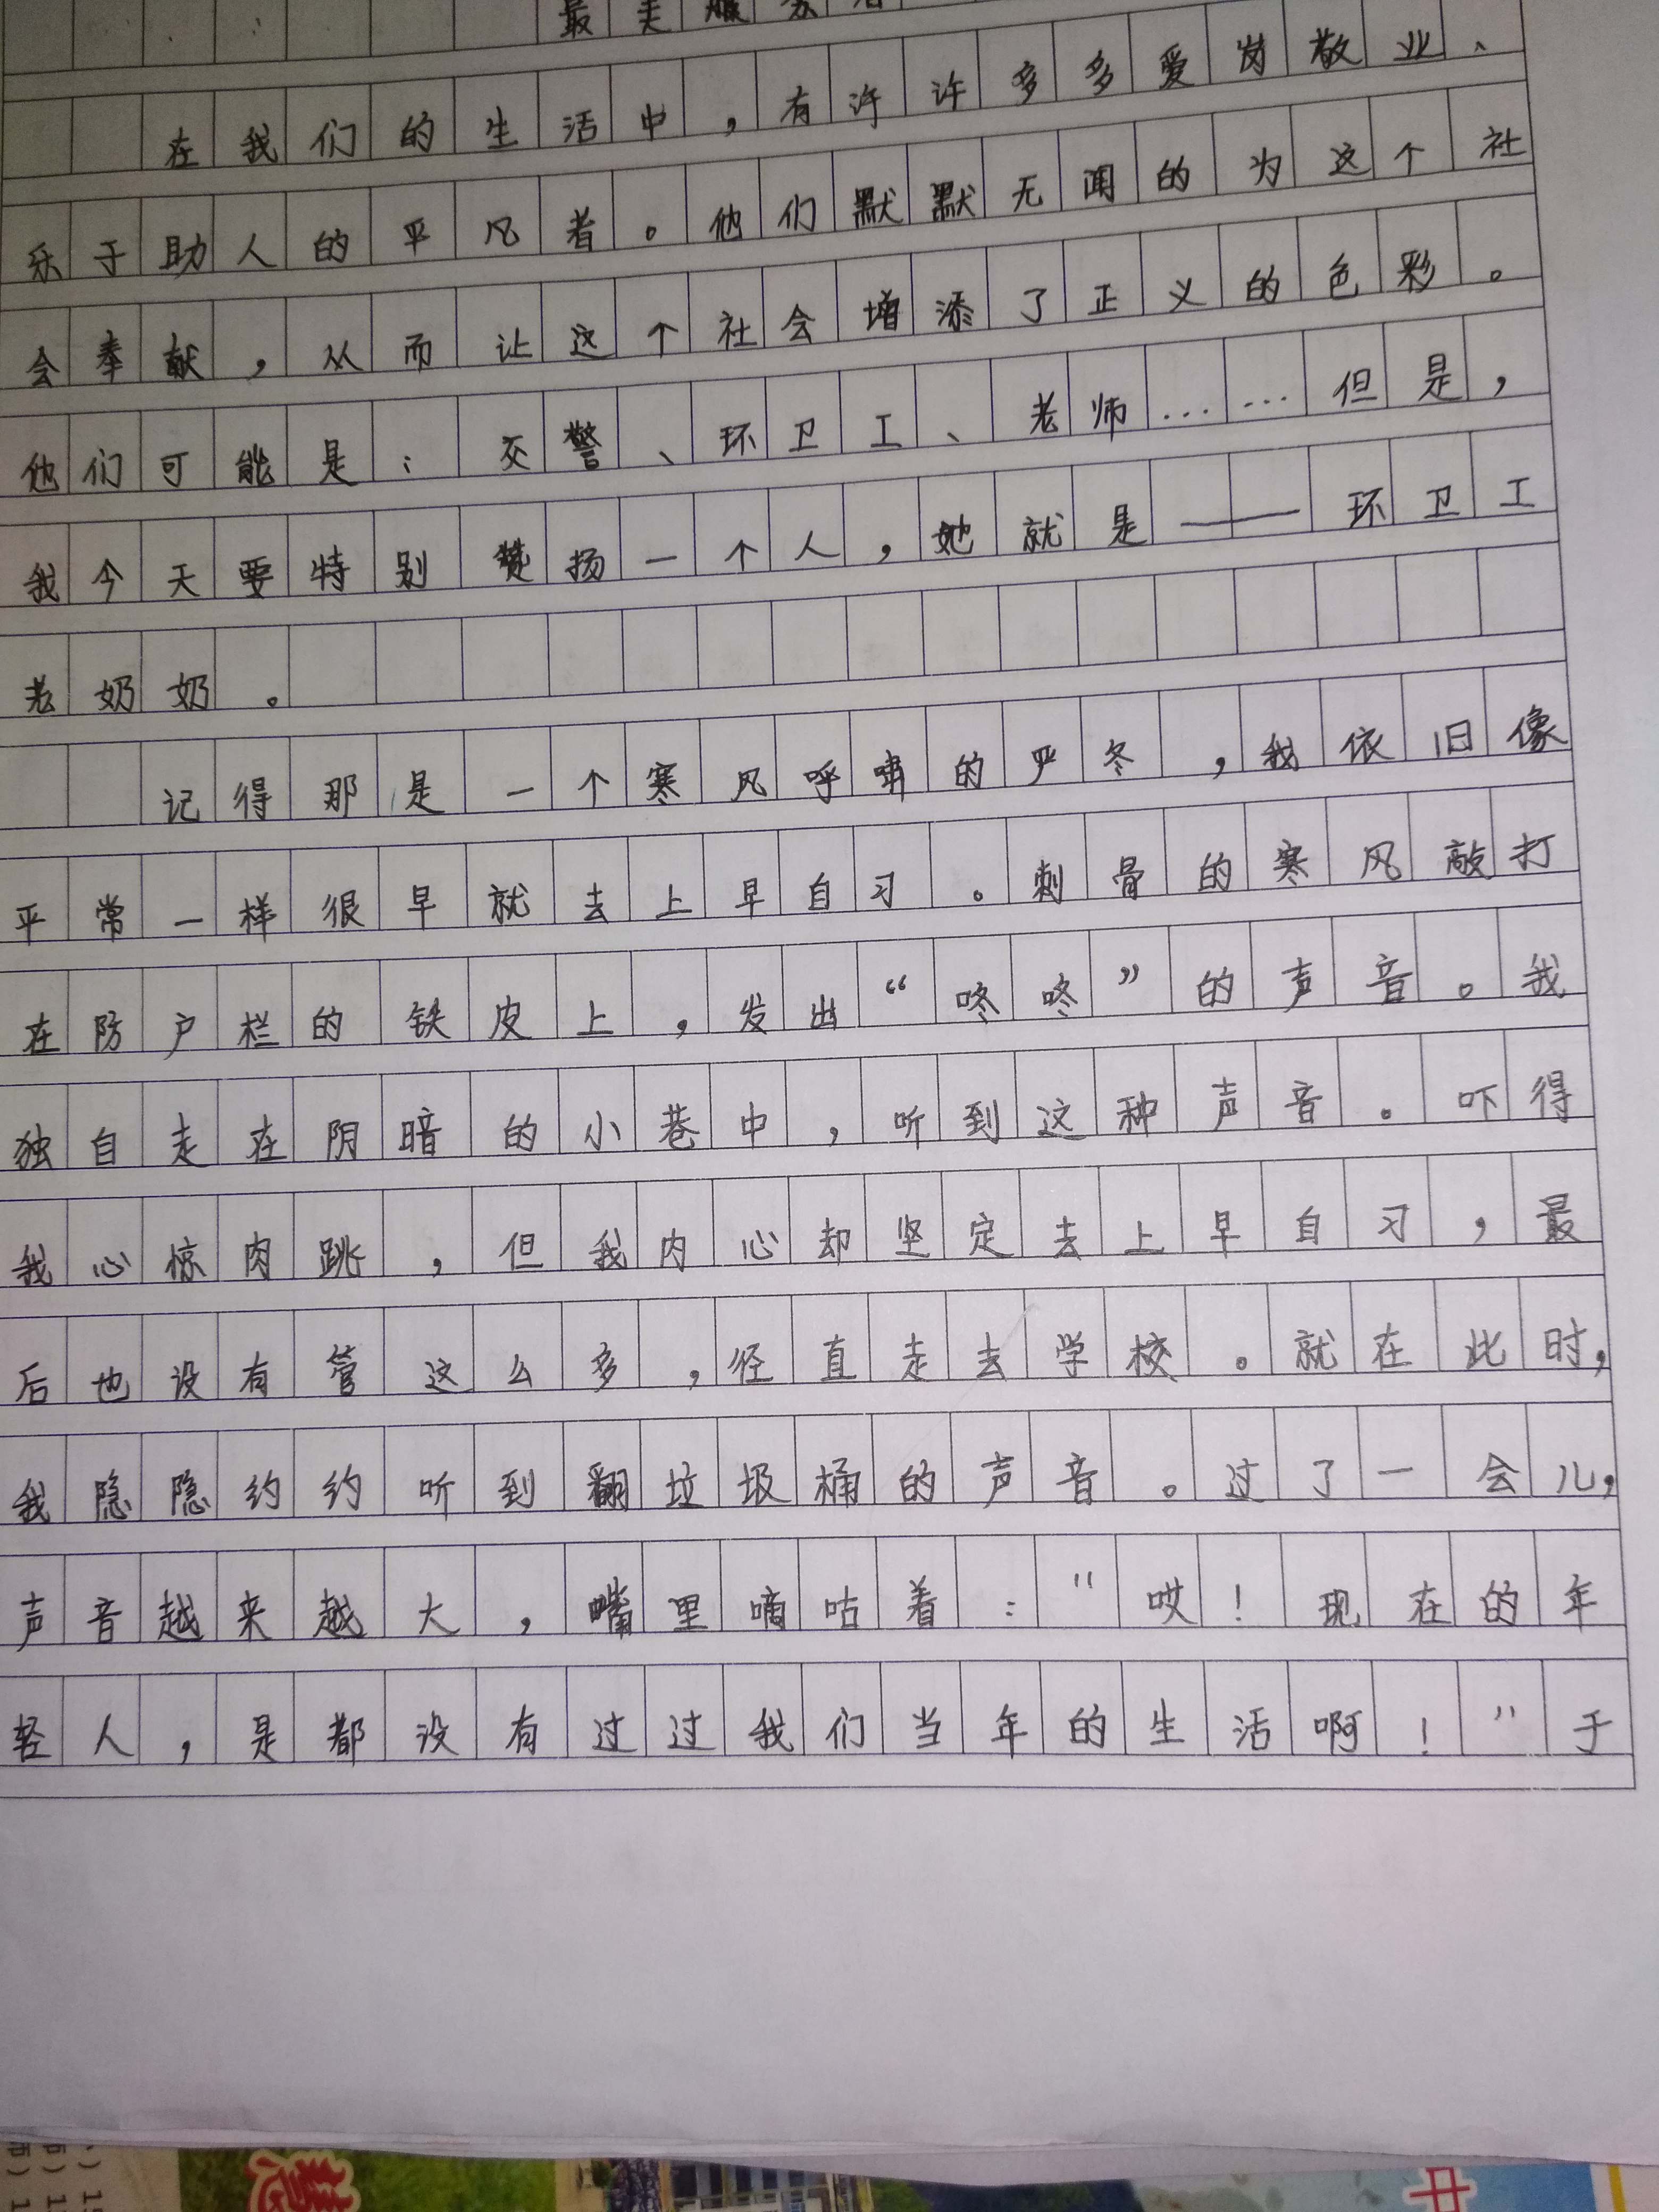 最美服务者
在我们的生活中，有许许多多爱岗敬业、
乐于助人的平凡者。他们默默无闻的为这个社
会奉献，从而让这个社会增添了正义的色彩。
他们可能是：交警、环卫工、老师……但是，
我今天要特别赞扬一个人，她就是——环卫工
老奶奶。
记得那是一个寒风呼啸的严冬，我依旧像
平常一样很早就去上早自习。刺骨的寒风敲打
在防户栏的铁皮上，发出“咚咚”的声音。我
独自走在阴暗的小巷中，听到这种声音。吓得
我心惊肉跳，但我内心却坚定去上早自习，最
后也没有管这么多，径直走去学校。就在此时，
我隐隐约约听到翻垃圾桶的声音。过了一会儿，
声音越来越大，嘴里嘀咕着：“哎！现在的年
轻人，是都没有过过我们当年的生活啊！”于